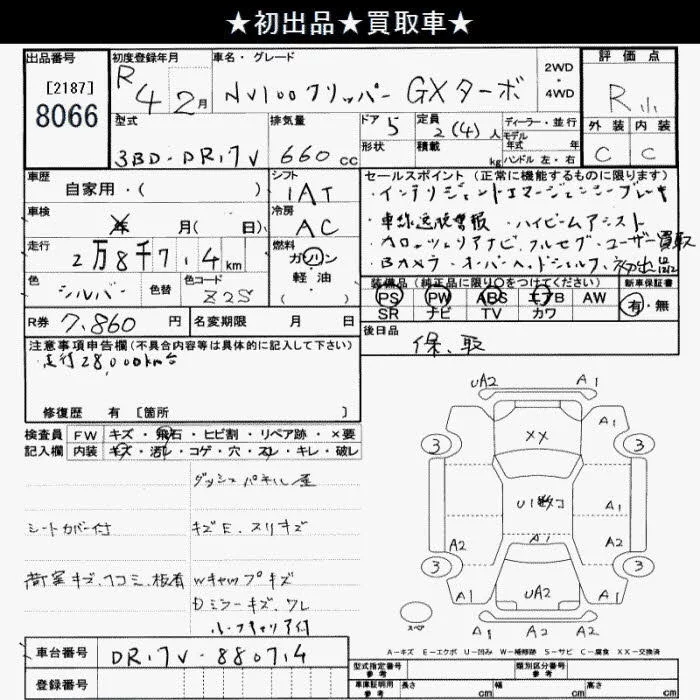 ★初出品★買取車★
出品番号
[2187]
8066
初度登録年月
R4 2月
車名・グレード
NV100クリッパー GXターボ
2WD
・
4WD
評価点
R
外装 内装
C C
型式
3BD-DR17V
排気量
660cc
ドア 5
形状
定員 2(4)人
積載 kg
ディーラー・並行
モデル
年式 年
ハンドル 左・右
車歴
自家用・( )
シフト
IAT
車検
年 月( 日)
冷房
AC
走行
2万8千7 . 4km
燃料
ガソリン
軽・油
( )
色
シルバー
色替
色コード
Z2S
R券 7,860円
名変期限 月 日
セールスポイント(正常に機能するものに限ります)
・インテリジェントエマージェンシーブレーキ
・車線逸脱警報 ・ハイビームアシスト
・カロッツェリアナビ・フルセグ・ユーザー買取
・Bカメラ・オーバーヘッドシェルフ・初出
装備品(純正品に限り○をつけてください)
PS PW ABS エアB AW
SR ナビ TV カワ
新車保証書
有・無
後日品
保、取
注意事項申告欄(不具合内容等は具体的に記入して下さい)
走行28,000km台
修復歴 有 [箇所 ]
検査員
記入欄
FW キズ・飛石・ヒビ割・リペア跡・×要
内装 キズ・汚レ・コゲ・穴・スレ・キレ・破レ
ダッシュパネル
シートカバー付
キズE、スリキズ
荷室キズ、凹コミ、板有
Wキャップキズ
Dミラーキズ、ワレ
ルーフキャリア付
UA2 A1
3 XX A1 3
U1数コ
A1
A2 A1 A2
3 UA2 3
A1 A1
スペア
A1 A2 A2
A-キズ E-エクボ U-凹み W-補修跡 S-サビ C-腐食 XX-交換済
車台番号
DR17V-880714
登録番号
型式指定番号
参考
類別区分番号
参考
車庫証明用
参考
長さ cm 幅 cm 高さ cm